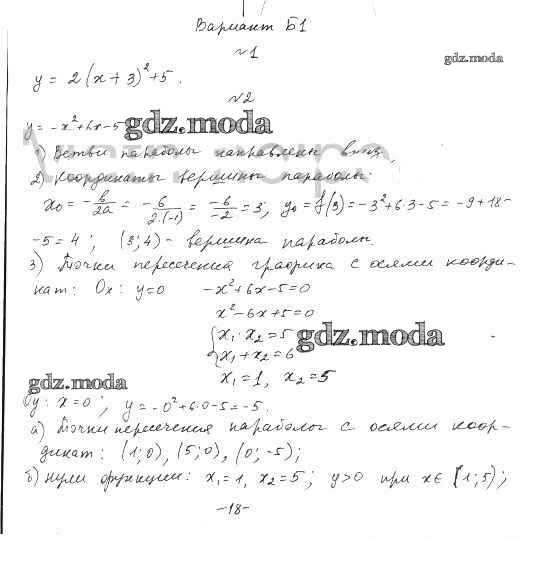 Вариант Б1
№1
gdz.moda
y = 2(x+3)²+5.
№2
y = -x²+6x-5 gdz.moda
1) Ветви параболы направлены вниз,
2) Координаты вершины параболы:
x₀ = -b/2a = -6/2·(-1) = -6/-2 = 3; y₀ = f(3) = -3²+6·3-5 = -9+18-
-5=4; (3;4) - вершина параболы.
3) Точки пересечения графика с осями коорди-
нат: Ox: y=0 -x²+6x-5=0
x²-6x+5=0
{x₁·x₂=5 gdz.moda
x₁+x₂=6
gdz.moda x₁=1, x₂=5
Oy: x=0; y=-0²+6·0-5=-5.
а) Точки пересечения параболы с осями коор-
динат: (1;0), (5;0), (0;-5);
б) нули функции: x₁=1, x₂=5; y>0 при x∈(1;5);
-18-